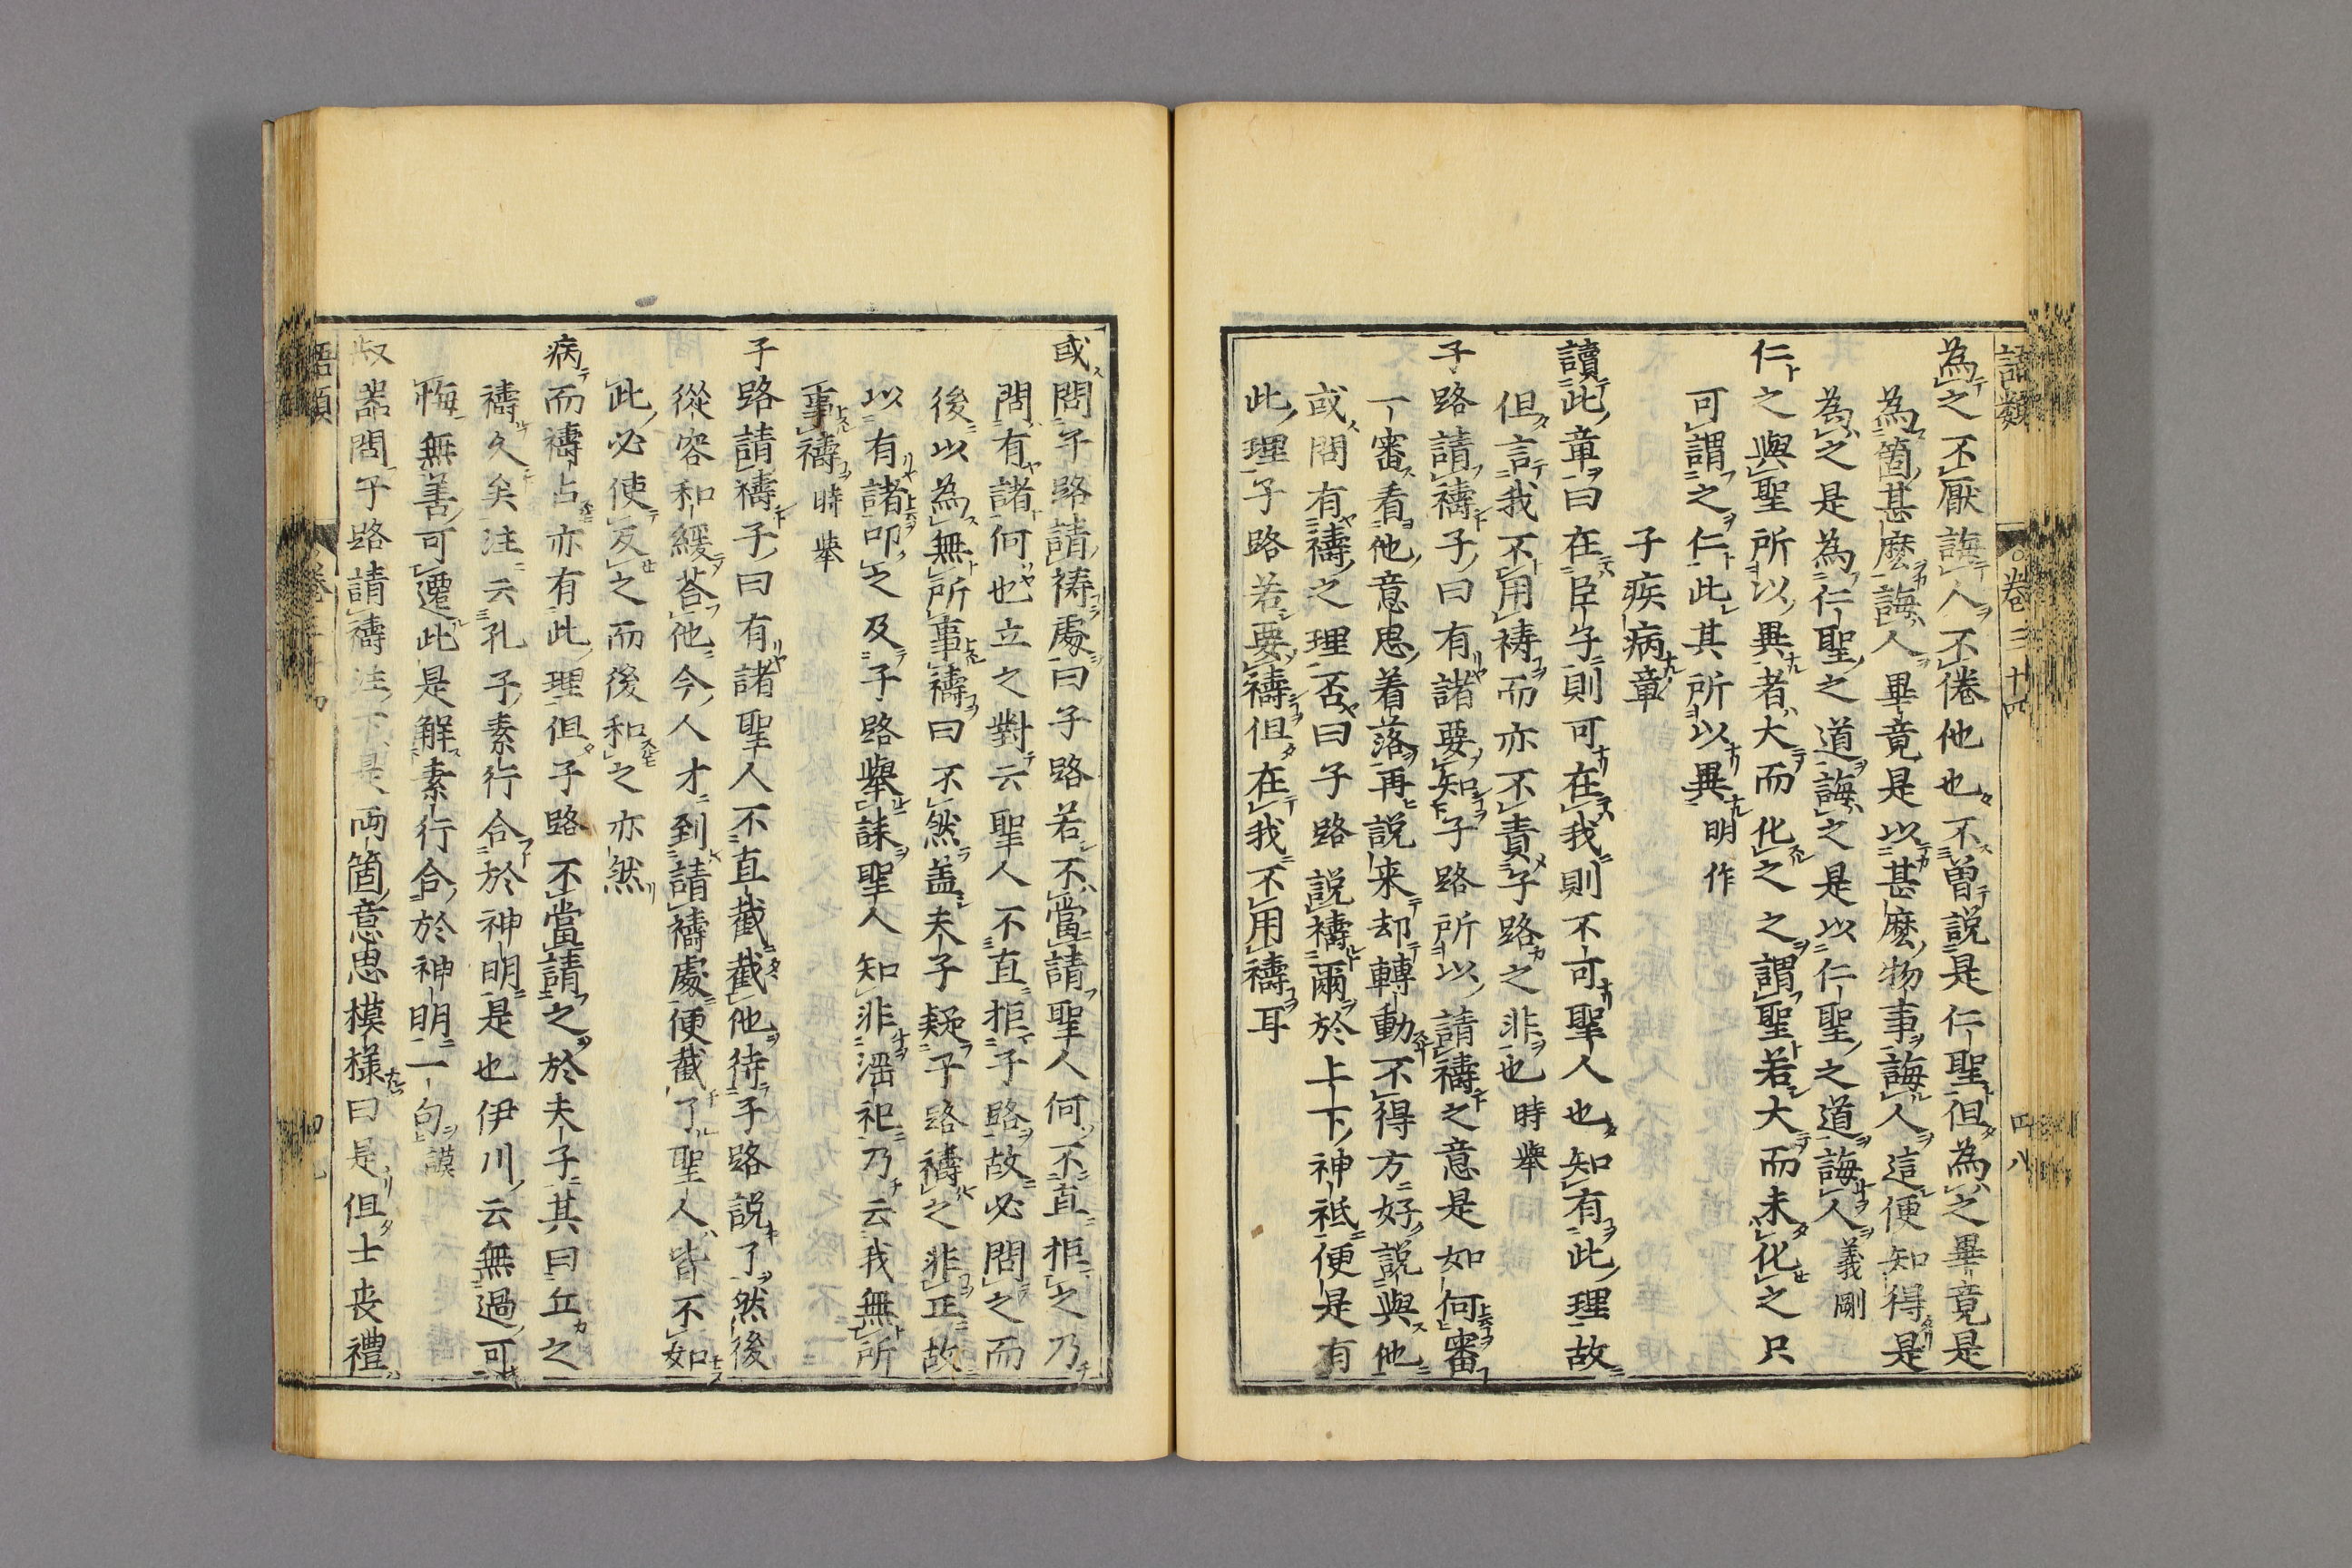 語類 卷三十四 四八
為之不厭誨人不倦他也不曽説是仁聖但為之畢竟是
為箇甚麽誨人畢竟是以甚麽物事誨人這便知得是
為之是為仁聖之道誨之是以仁聖之道誨人義剛
仁之與聖所以異者大而化之之謂聖若大而未化之只
可謂之仁此其所以異明作
子疾病章
讀此章曰在臣子則可在我則不可聖人也知有此理故
但言我不用祷而亦不責子路之非也時挙
子路請禱子曰有諸要知子路所以請禱之意是如何審
一審看他意思着落再説来却轉動不得方好説與他
或問有禱之理否曰子路説禱爾於上下神祗便是有
此理子路若要禱但在我不用禱耳
或問子路請祷處曰子路若不當請聖人何不直拒之乃
問有諸何也立之對云聖人不直拒子路故必問之而
後以為無所事禱曰不然盖夫子疑子路禱之非正故
以有諸叩之及子路舉誄聖人知非淫祀乃云我無所
事禱時挙
子路請禱子曰有諸聖人不直截截他待子路説了然後
從容和緩荅他今人才到請禱處便截了聖人皆不如
此必使反之而後和之亦然
病而禱古亦有此理但子路不當請之於夫子其曰丘之
禱久矣注云孔子素行合於神明是也伊川云無過可
悔無善可遷此是解素行合於神明一句謨
叔器問子路請禱注下是両箇意思模様曰是但士丧禮
語類 卷三十四 四九